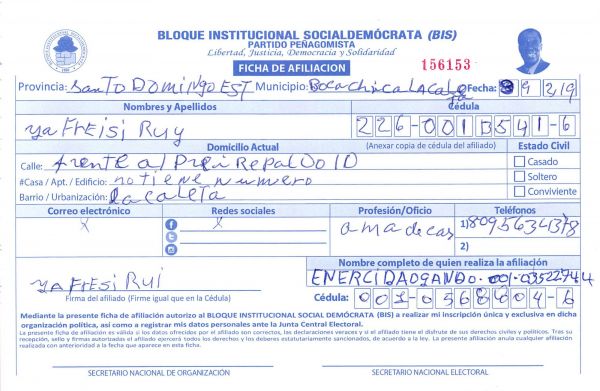 BLOQUE INSTITUCIONAL SOCIALDEMÓCRATA (BIS)
PARTIDO PEÑAGOMISTA
Libertad, Justicia, Democracia y Solidaridad
FICHA DE AFILIACION
156153
Provincia: Santo Domingo EST Municipio: Bocachica Fecha: 9 219
Nombres y Apellidos
Cédula
yaFreisi Ruy
226-0013541-6
Domicilio Actual
(Anexar copia de cédula del afiliado)
Estado Civil
Calle: frente al
Casado
#Casa / Apt. / Edificio: no tiene numero
Soltero
Barrio / Urbanización: la caleta
Conviviente
Correo electrónico
Redes sociales
Profesión/Oficio
Teléfonos
X
X
ama de cas
1) 8095634378
2)
Nombre completo de quien realiza la afiliación
yaFresi Rui
ENERCIDA OGANDO. 001-0352274
Firma del afiliado (Firme igual que en la Cédula)
Cédula: 001-0568804-6
Mediante la presente ficha de afiliación autorizo al BLOQUE INSTITUCIONAL SOCIAL DEMÓCRATA (BIS) a realizar mi inscripción única y exclusiva en dicha
organización política, así como a registrar mis datos personales ante la Junta Central Electoral.
La presente ficha de afiliación es válida si los datos ofrecidos por el afiliado son correctos, las declaraciones veraces y si el afiliado tiene el disfrute de sus derechos civiles y políticos. Tras su
recepción, sello y firmas autorizadas el afiliado ejercerá todos los derechos y los deberes estatutariamente sancionados, de acuerdo a la ley. La presente afiliación anula cualquier afiliación
realizada con anterioridad a la fecha que aparece en esta ficha.
SECRETARIO NACIONAL DE ORGANIZACIÓN
SECRETARIO NACIONAL ELECTORAL